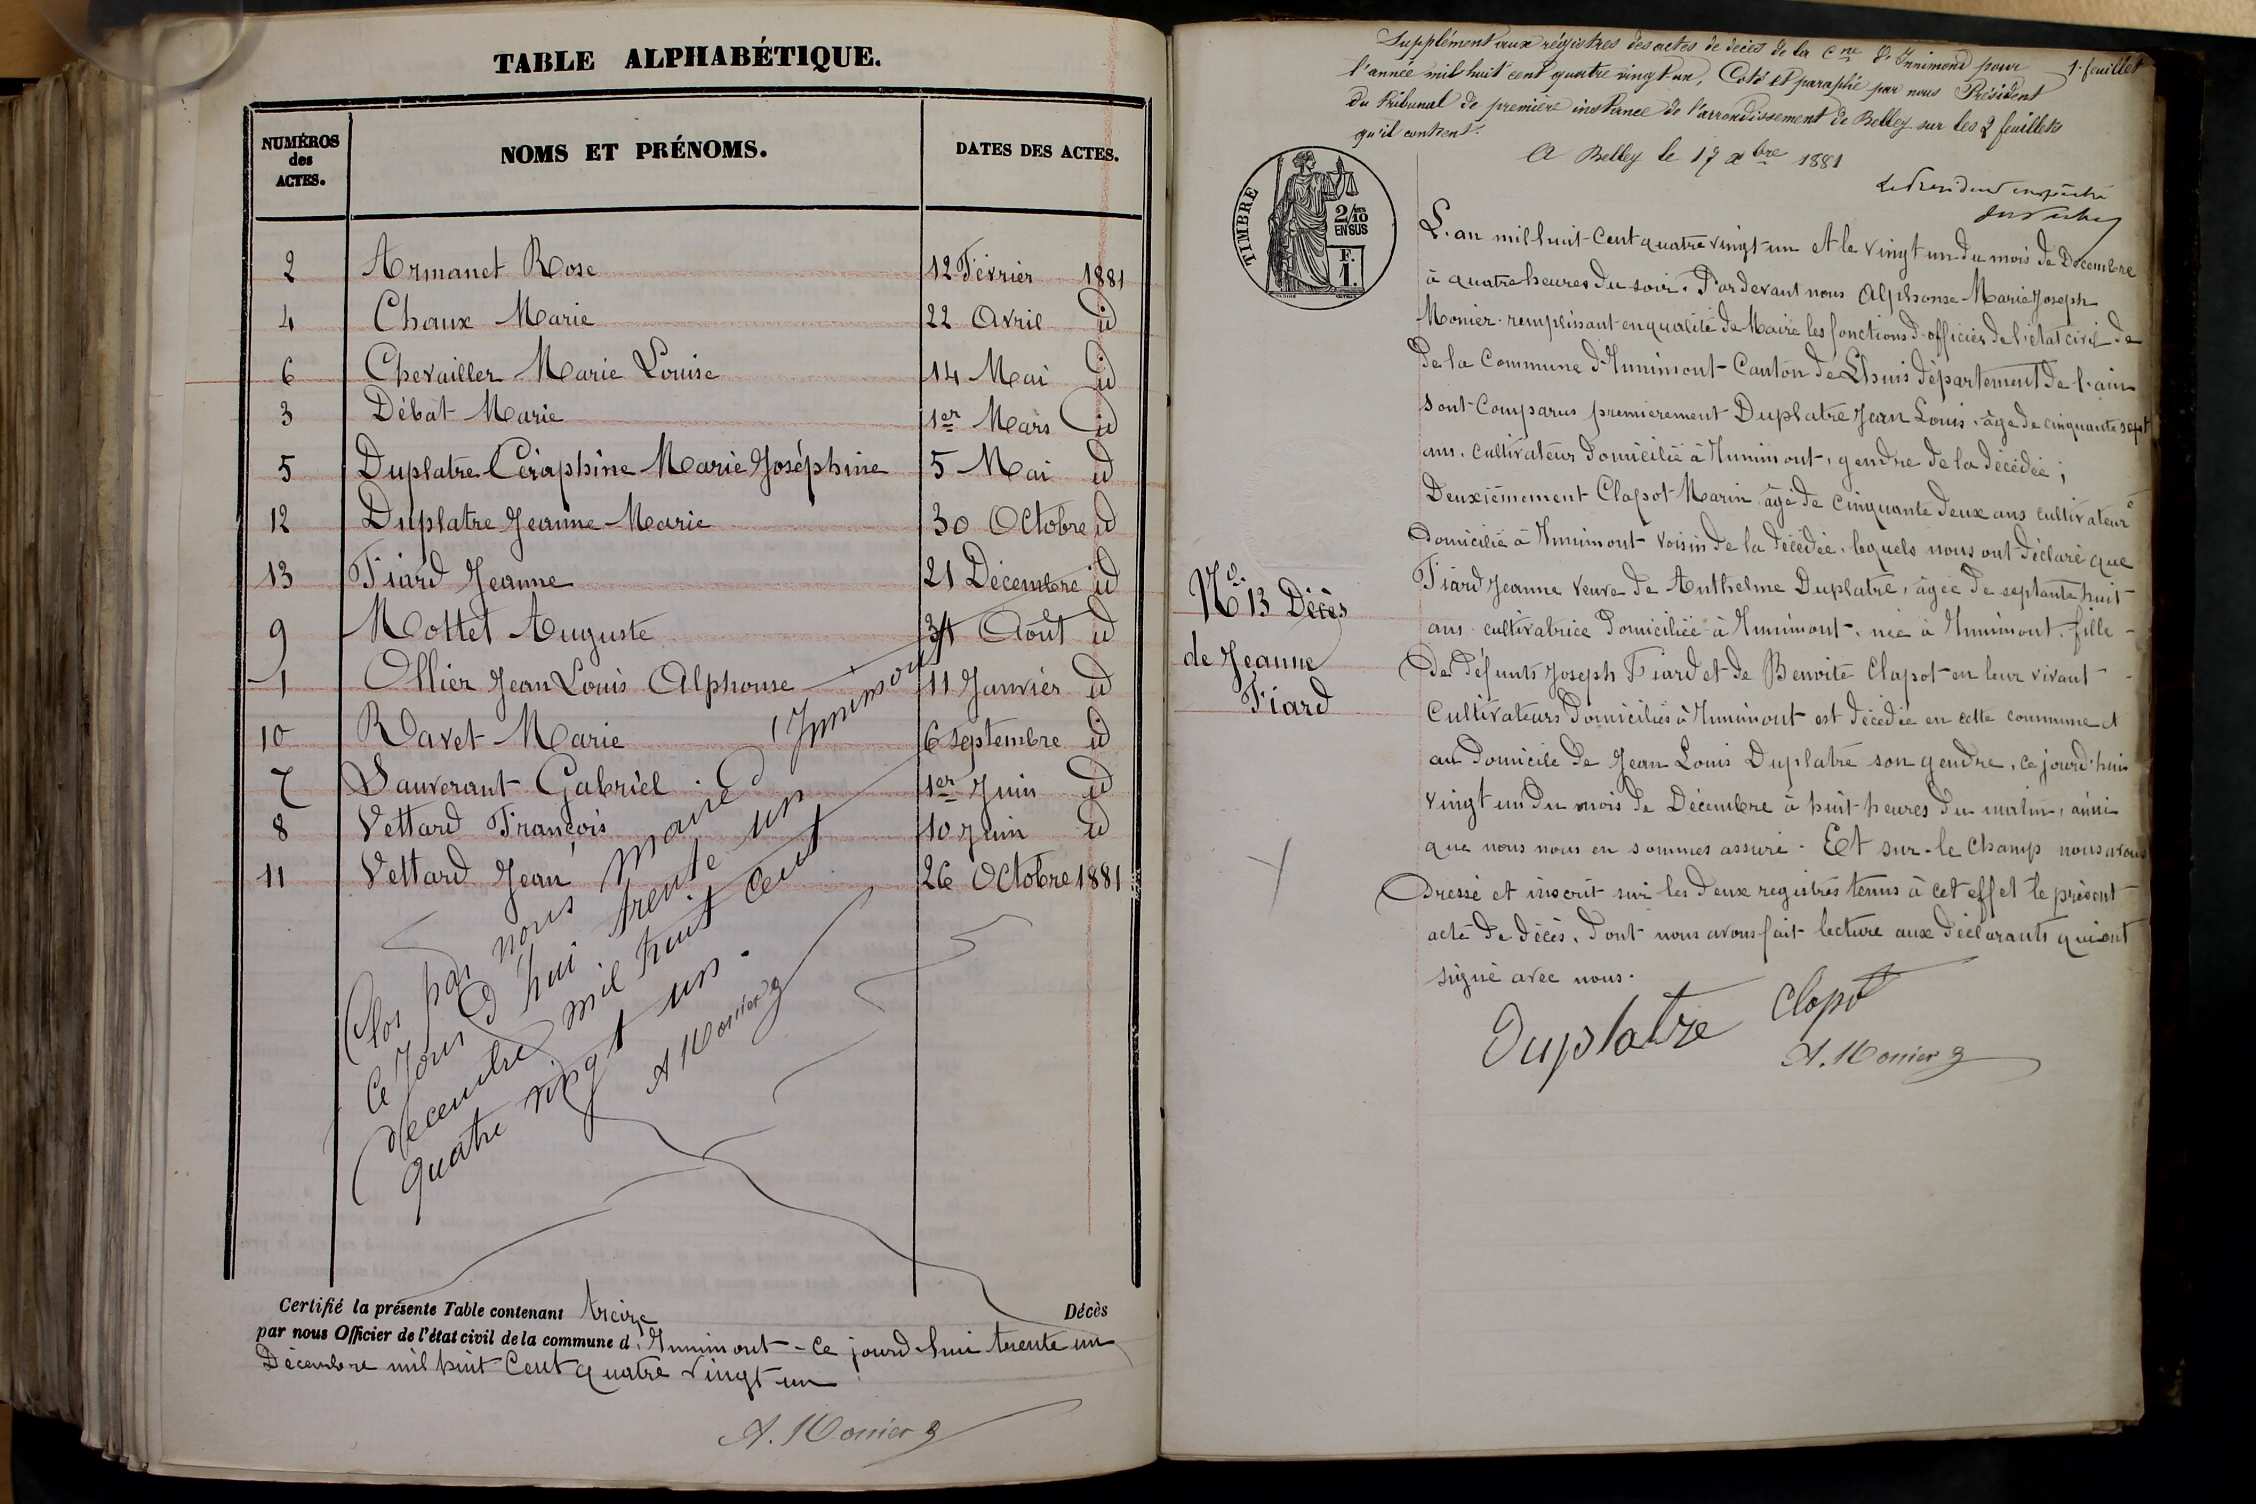 TABLE ALPHABÉTIQUE.
NUMÉROS des ACTES. NOMS ET PRÉNOMS. DATES DES ACTES.
2 Armanet Rose 12 Février 1881
4 Chaux Marie 22 Avril id
6 Chevailler Marie Louise 14 Mai id
3 Débat Marie 1er Mars id
5 Duplatre Céraphine Marie Joséphine 5 Mai id
12 Duplatre Jeanne Marie 30 Octobre id
13 Fiard Jeanne 21 Décembre id
9 Mottet Auguste 31 Août id
1 Ollier Jean Louis Alphonse 11 Janvier id
10 Ravet Marie 6 septembre id
7 Sauverant Gabriel 1er Juin id
8 Vettard François 10 Juin id
11 Vettard Jean 26 Octobre 1881
Clos par nous maire d'Innimont
ce jour d'hui trente un
décembre mil huit cent
quatre vingt un.
A Monier
Certifié la présente Table contenant treize Décès
par nous Officier de l'état civil de la commune d'Innimont - ce jourd'hui trente un
Décembre mil huit Cent quatre vingt un
A. Monier
Supplément aux régistres des actes de décès de la Cne d'Innimond pour 1er feuillet
l'année mil huit cent quatre vingt un, Coté et paraphé par nous Président
du tribunal de première instance de l'arrondissement de Belley sur les 2 feuillets
qu'il contient.
A Belley le 17 xbre 1881
Le Président
TIMBRE
2/10 EN SUS
F. 1.
L'an mil huit Cent quatre vingt un et le vingt un du mois de Décembre
à quatre heures du soir. Pardevant nous Alphonse Marie Joseph
Monier remplissant en qualité de Maire les fonctions d'officier de l'état civil de
de la Commune d'Innimont Canton de Lhuis département de l'ain
sont Comparus premièrement Duplatre Jean Louis, âgé de cinquante sept
ans, cultivateur domicilié à Innimont, gendre de la décédée ;
Deuxièmement Clapot Marin âgé de cinquante deux ans cultivateur
domicilié à Innimont voisin de la décédée, lequels nous ont déclaré que
Fiard Jeanne veuve de Anthelme Duplatre, âgée de septante huit
ans cultivatrice domiciliée à Innimont, née à Innimont, fille
De défunts Joseph Fiard et de Benoite Clapot en leur vivant
Cultivateurs domiciliés à Innimont est décédée en cette commune et
au domicile de Jean Louis Duplatre son gendre, ce jourd'hui
vingt un du mois de Décembre à huit heures du matin, ainsi
que nous nous en sommes assuré. Et sur-le champ nous avons
Dressé et inscrit sur les deux registres tenus à cet effet le présent
acte de décès, dont nous avons fait lecture aux déclarants qui ont
signé avec nous.
No. 13 Décès
de Jeanne
Fiard
Duplatre Clapot
A. Monier